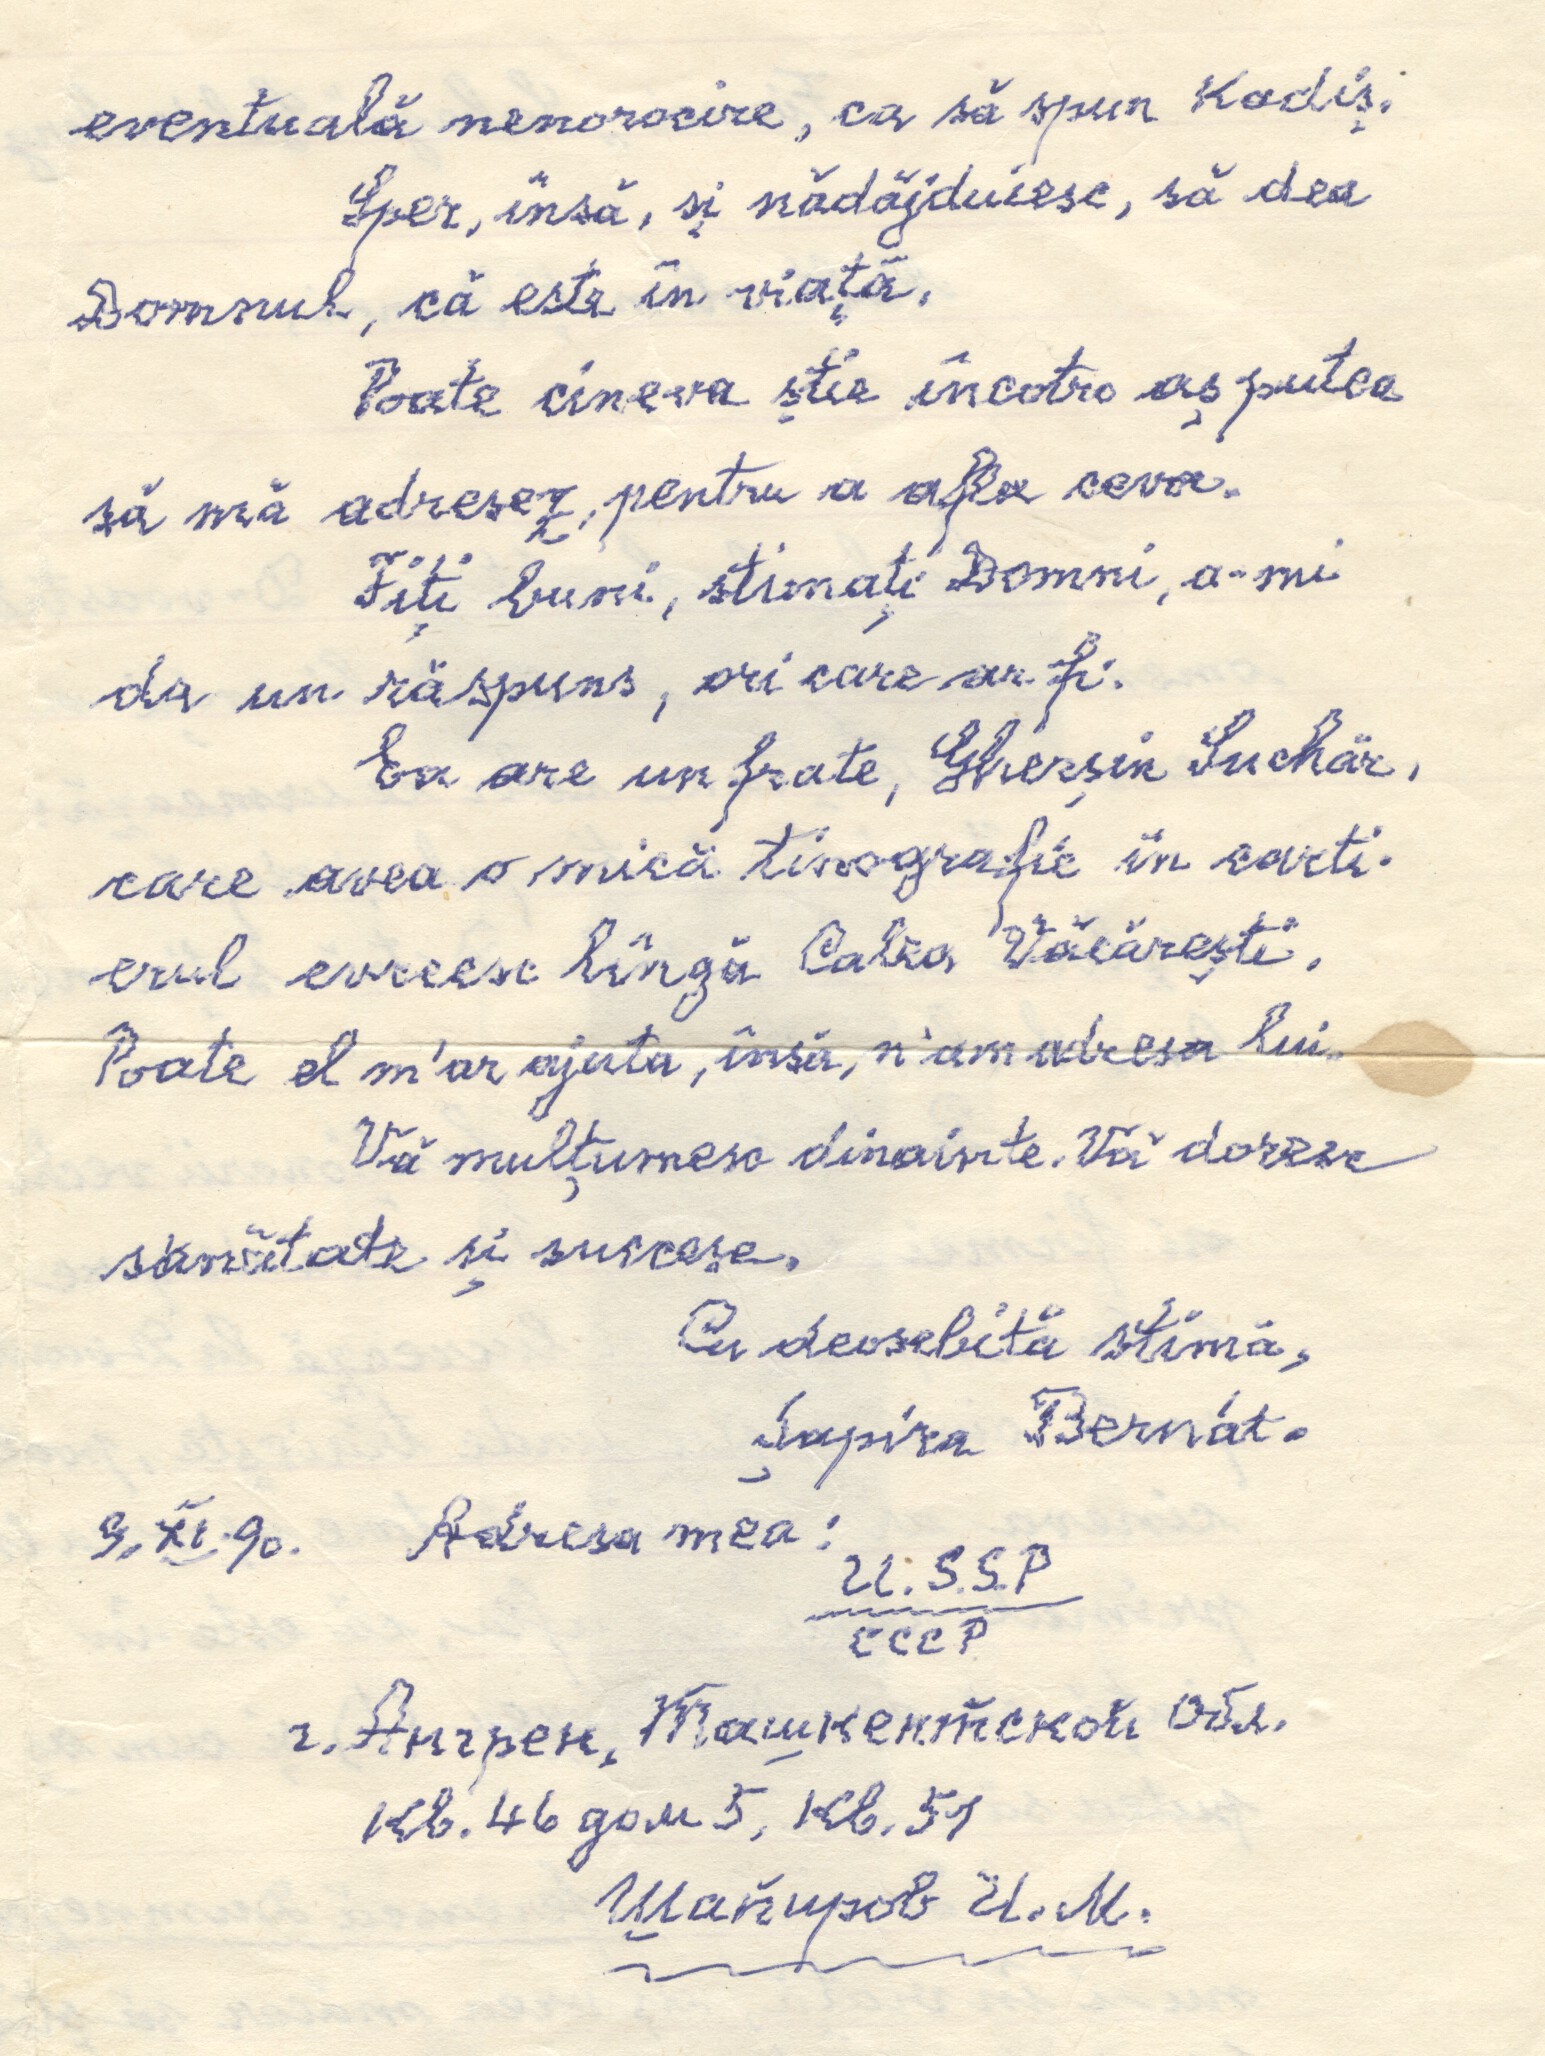 eventuală nenorocire, ca să spun Kadiș.
Sper, însă, și nădăjduiesc, să dea
Domnul, că este în viață.
Poate cineva știe încotro aș putea
să mă adresez, pentru a afla ceva.
Fiți buni, stimați Domni, a-mi
da un răspuns, ori care ar fi.
Ea are un frate, Gherșin Suchăr,
care avea o mică tipografie în carti-
erul evreesc lîngă Calea Văcărești.
Poate el m'ar ajuta, însă, n'am adresa lui.
Vă mulțumesc dinainte. Vă doresc
sănătate și succese.
Cu deosebită stimă,
Șapira Bernát.
9. XI. 90. Adresa mea:
U.S.S.P
СССР
г. Ангрен, Ташкентской обл.
Кв. 46 дом 5, Кв. 51
Шапиров И. М.